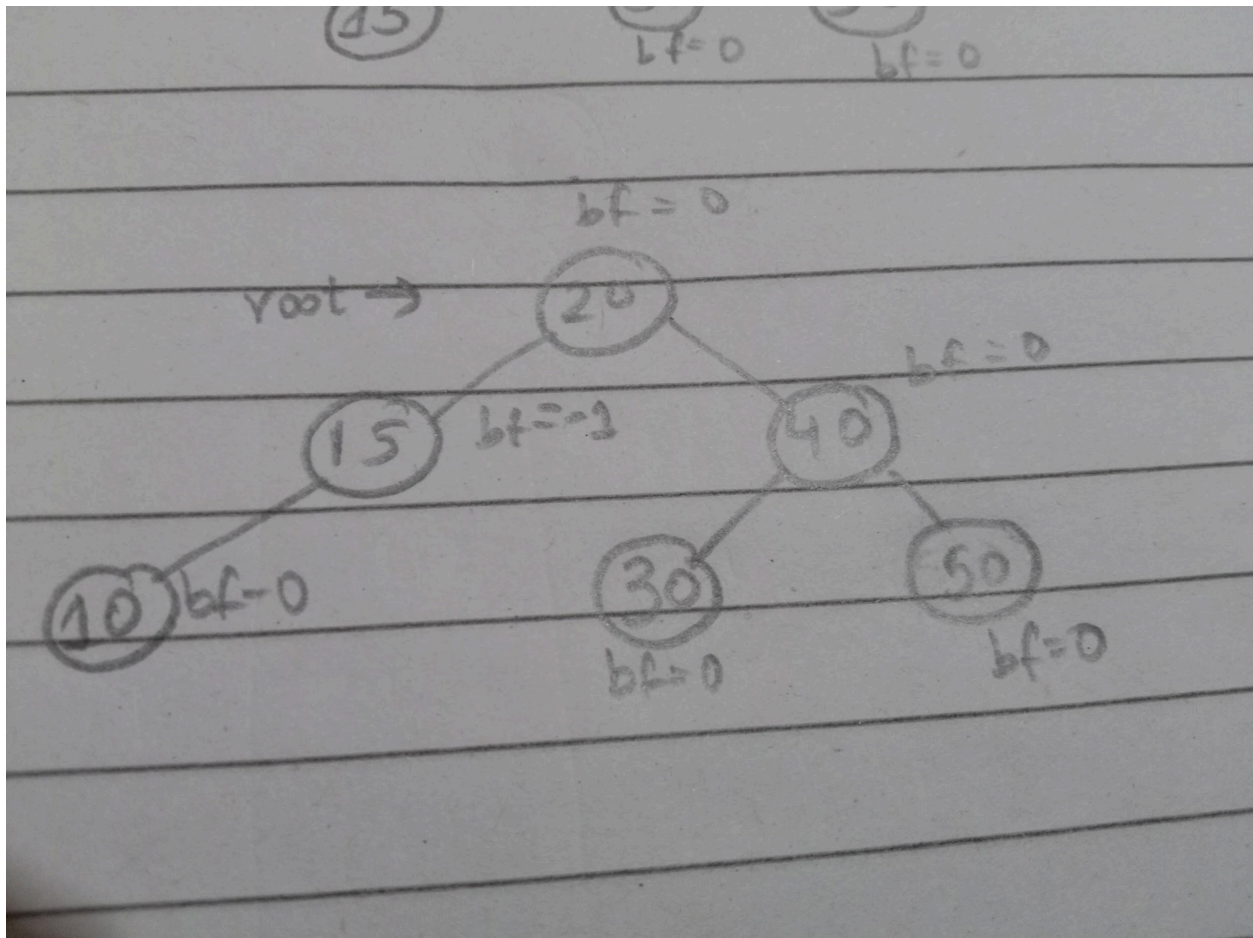 15
bf=0 bf=0
bf = 0
root → 20
bf=0
15 bf=-1 40
10 bf-0 30 50
bf=0 bf=0